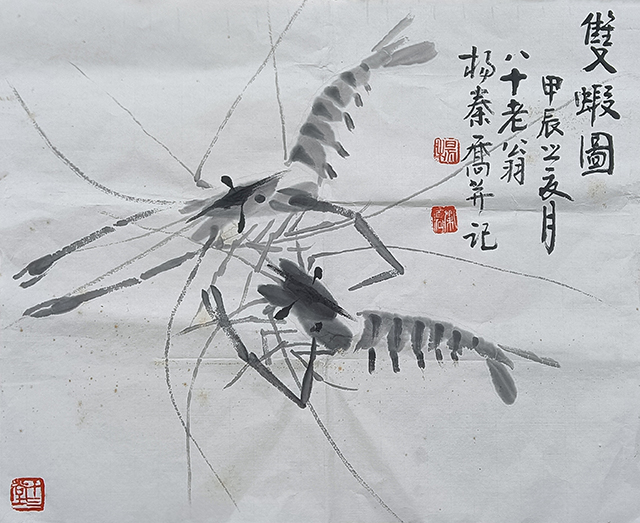 雙蝦圖
甲辰之夏月
八十老翁
杨秦喬并记